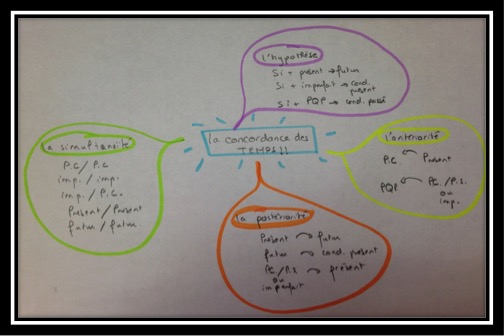 la concordance des
TEMPS!!
l'hypothèse
Si + présent → futur
Si + imparfait → cond.
présent
Si + PQP → cond. passé
la simultanéité
P.C / P.C
imp. / imp.
imp. / P.C.
Présent / Présent
futur / futur.
l'antériorité
P.C. Présent
PQP PC. / P.S.
ou
imp.
la postériorité
Présent → futur
futur → cond. présent
PC. / P.S → présent
ou
imparfait